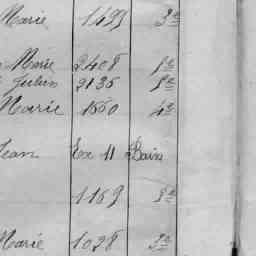 Marie 1493 3e
Marie 2408 1e
Julien 2135 5e
Marie 1550 4e
Jean Ex 11 Bain
1169 3e
Marie 1028 3e